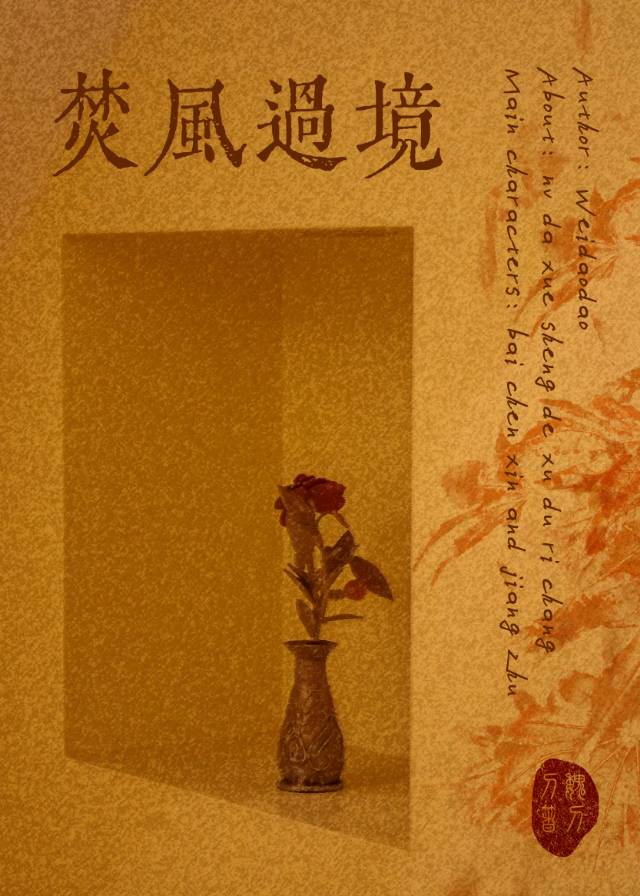 焚風過境
Author: Weidaodao
About: nv da xue sheng de xu du ri chang
Main characters: bai chen xin and jiang zhu